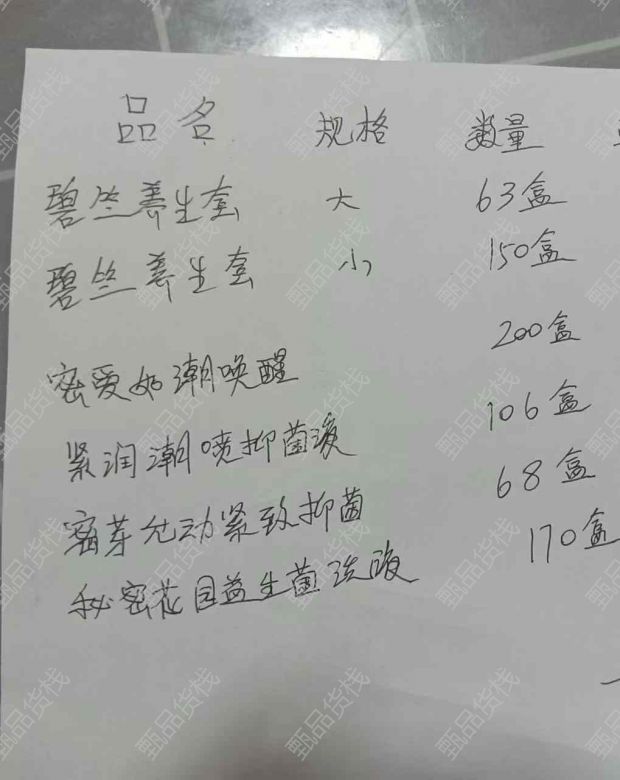 品名 规格 数量
碧竺养生套 大 63盒
碧竺养生套 小 150盒
密爱如潮唤醒 200盒
紧润潮喷抑菌液 106盒
密芽允动紧致抑菌 68盒
秘密花园益生菌洗液 170盒
甄品货栈